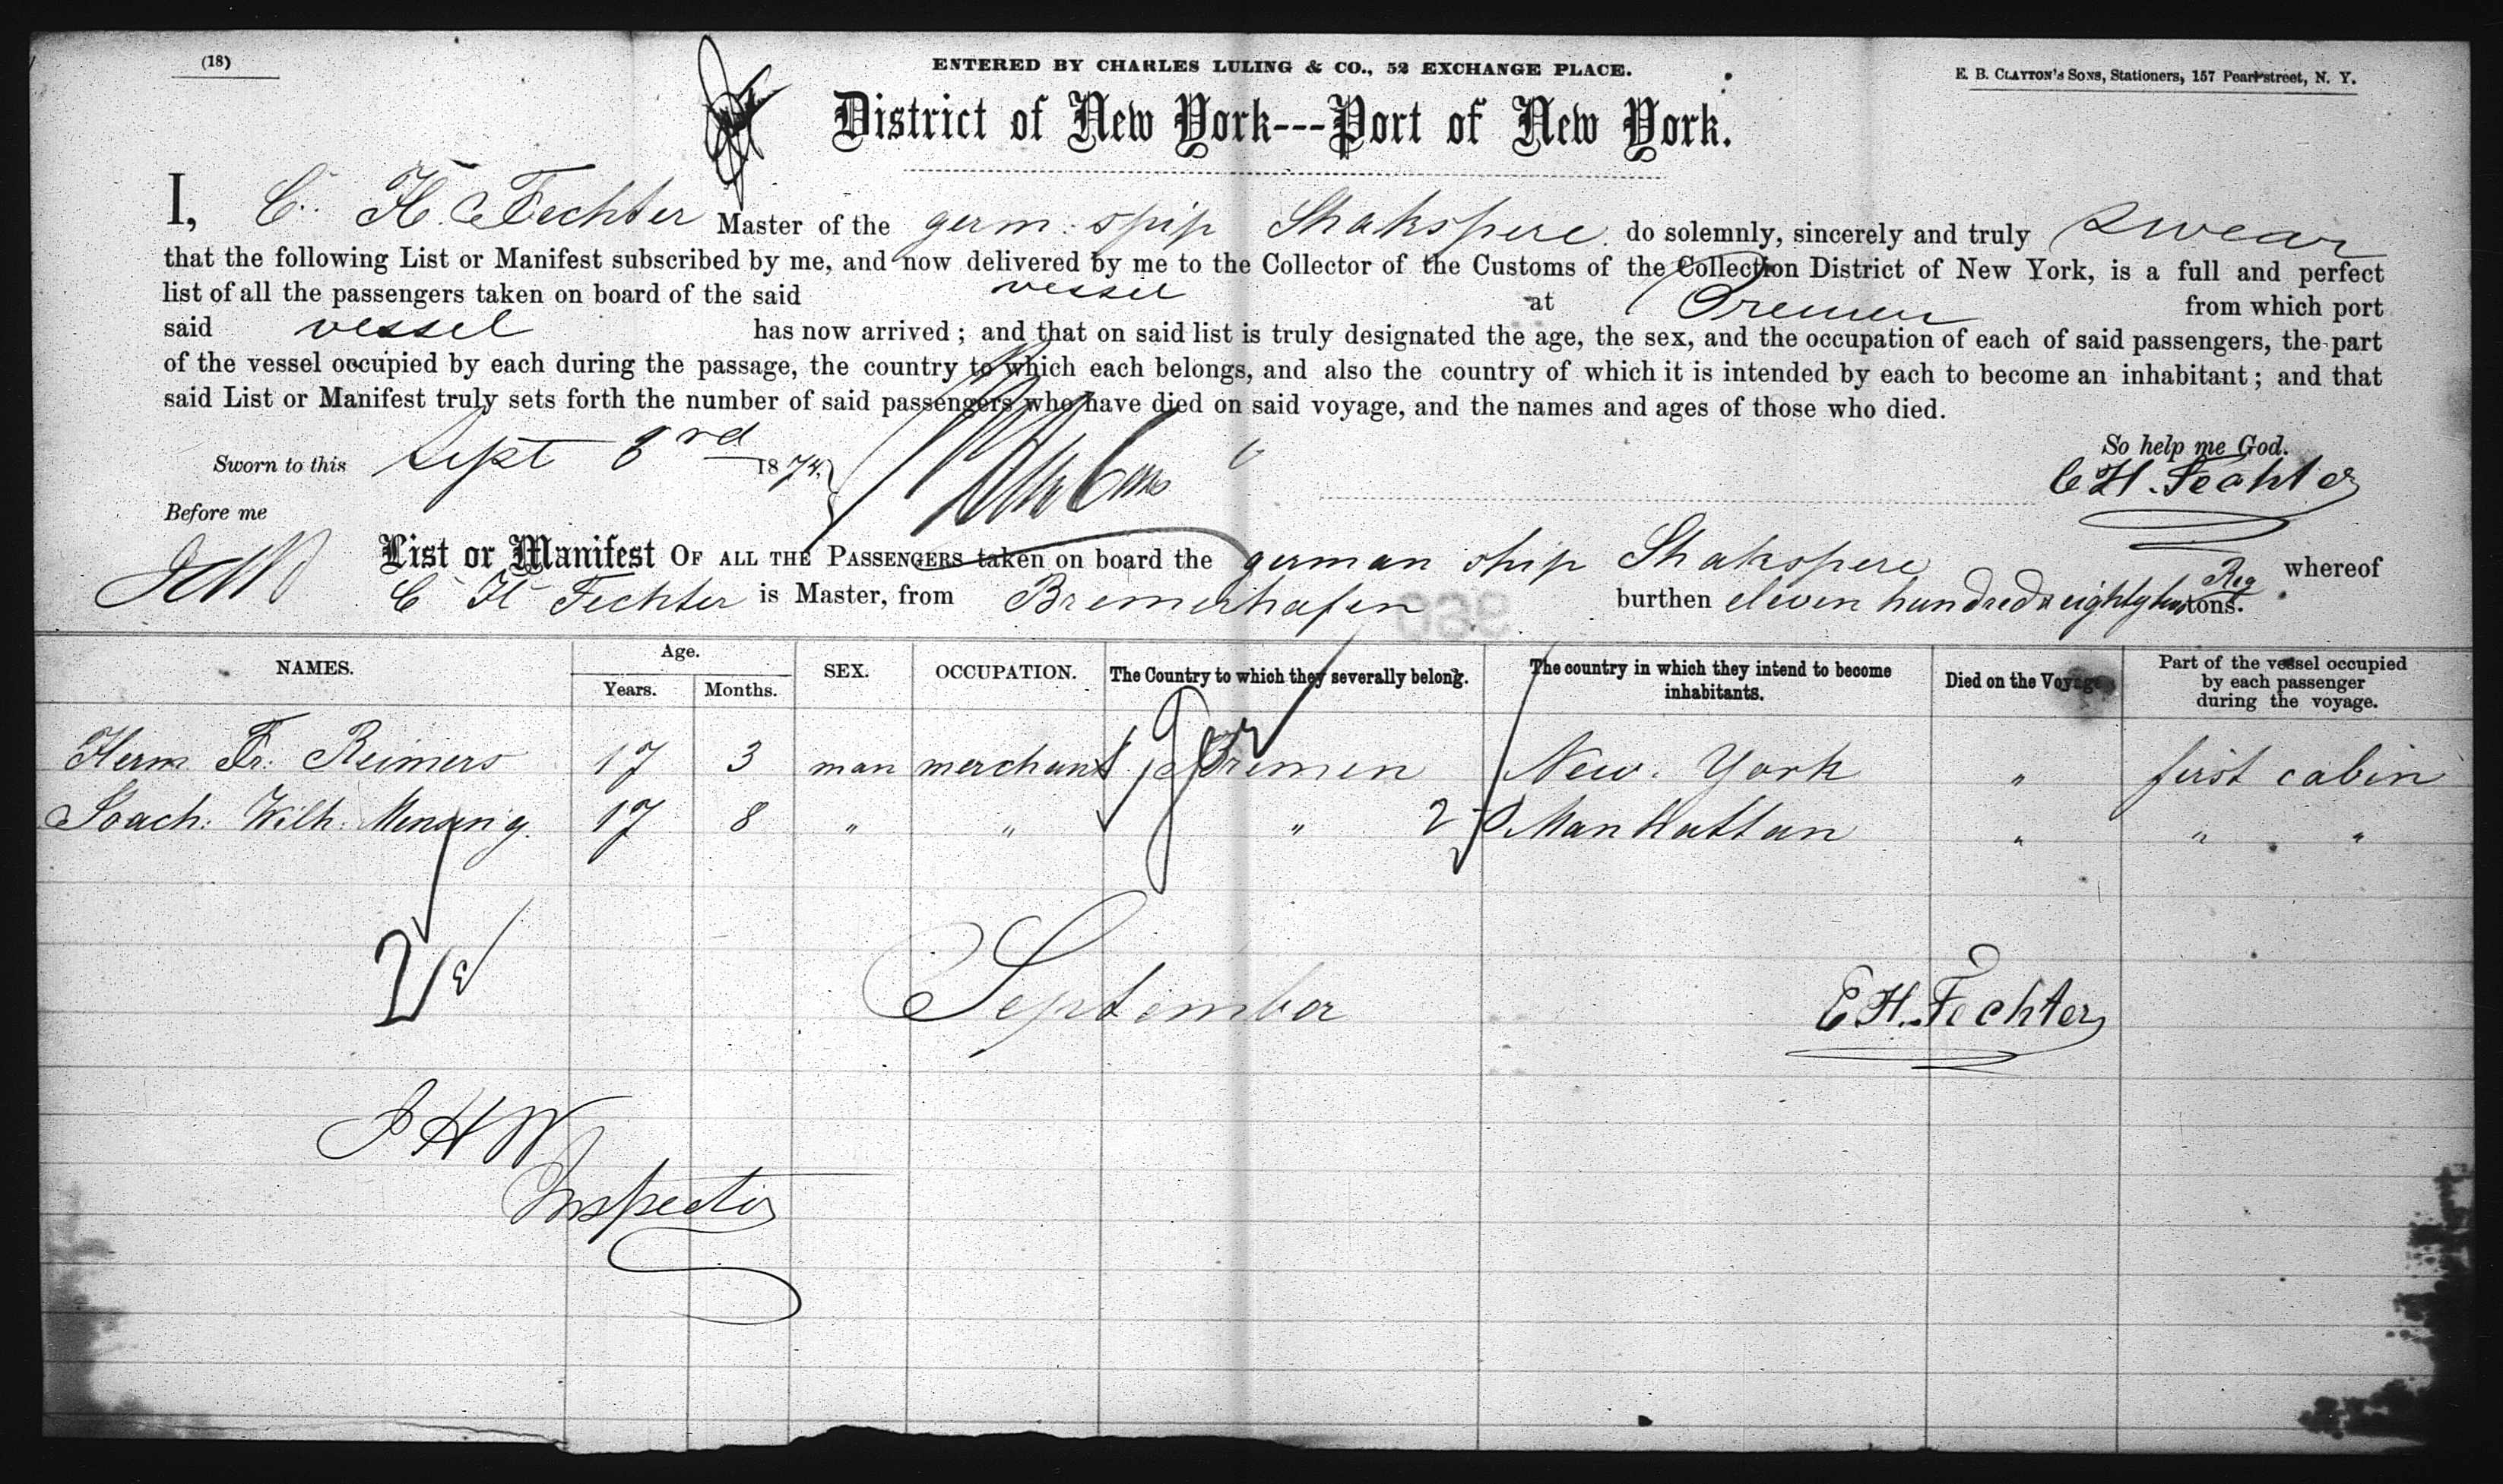 (18)
ENTERED BY CHARLES LULING & CO., 52 EXCHANGE PLACE.
E. B. CLAYTON'S SONS, Stationers, 157 Pearl street, N. Y.
District of New York---Port of New York.
I, C. H. Fechter Master of the germ. ship Shakspere. do solemnly, sincerely and truly swear
that the following List or Manifest subscribed by me, and now delivered by me to the Collector of the Customs of the Collection District of New York, is a full and perfect
list of all the passengers taken on board of the said vessel at Bremen from which port
said vessel has now arrived; and that on said list is truly designated the age, the sex, and the occupation of each of said passengers, the part
of the vessel occupied by each during the passage, the country to which each belongs, and also the country of which it is intended by each to become an inhabitant; and that
said List or Manifest truly sets forth the number of said passengers who have died on said voyage, and the names and ages of those who died.
So help me God.
Sworn to this Sept 3rd 1874.
C H. Fechter
Before me
List or Manifest OF ALL THE PASSENGERS taken on board the german ship Shakspere whereof
C H Fechter is Master, from Bremerhafen burthen eleven hundred & eighty Reg tons.
NAMES. Age. Years. Months. SEX. OCCUPATION. The Country to which they severally belong. The country in which they intend to become inhabitants. Died on the Voyage Part of the vessel occupied by each passenger during the voyage.
Ger
Herm. Fr. Reimers 17 3 man merchant Bremen New. York " first cabin
Joach: Wilh: 17 8 " " " 2 Manhattan " " "
2
September
C H. Fechter
J H W
Inspector